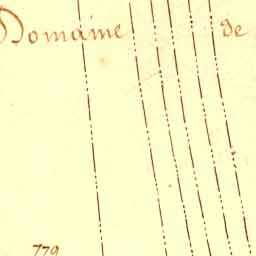 Domaine de
779